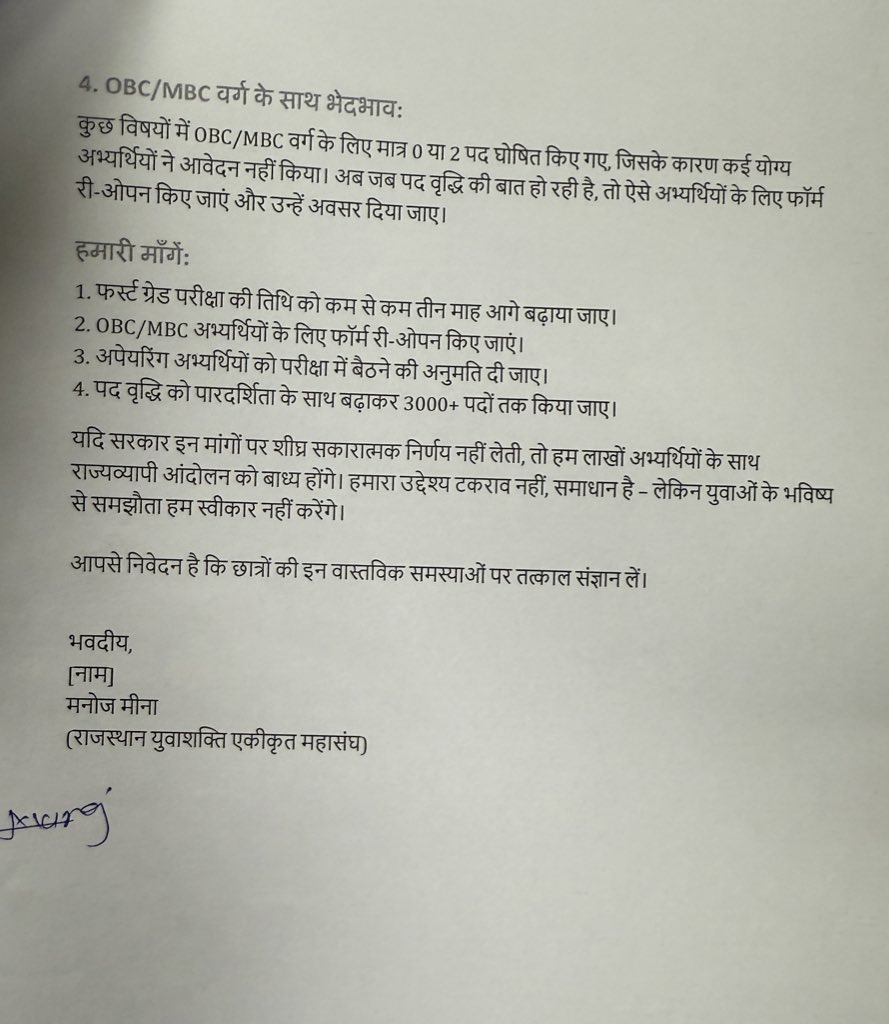 4. OBC/MBC वर्ग के साथ भेदभाव:
कुछ विषयों में OBC/MBC वर्ग के लिए मात्र 0 या 2 पद घोषित किए गए, जिसके कारण कई योग्य
अभ्यर्थियों ने आवेदन नहीं किया। अब जब पद वृद्धि की बात हो रही है, तो ऐसे अभ्यर्थियों के लिए फॉर्म
री-ओपन किए जाएं और उन्हें अवसर दिया जाए।
हमारी माँगें:
1. फर्स्ट ग्रेड परीक्षा की तिथि को कम से कम तीन माह आगे बढ़ाया जाए।
2. OBC/MBC अभ्यर्थियों के लिए फॉर्म री-ओपन किए जाएं।
3. अपेयरिंग अभ्यर्थियों को परीक्षा में बैठने की अनुमति दी जाए।
4. पद वृद्धि को पारदर्शिता के साथ बढ़ाकर 3000+ पदों तक किया जाए।
यदि सरकार इन मांगों पर शीघ्र सकारात्मक निर्णय नहीं लेती, तो हम लाखों अभ्यर्थियों के साथ
राज्यव्यापी आंदोलन को बाध्य होंगे। हमारा उद्देश्य टकराव नहीं, समाधान है – लेकिन युवाओं के भविष्य
से समझौता हम स्वीकार नहीं करेंगे।
आपसे निवेदन है कि छात्रों की इन वास्तविक समस्याओं पर तत्काल संज्ञान लें।
भवदीय,
[नाम]
मनोज मीना
(राजस्थान युवाशक्ति एकीकृत महासंघ)